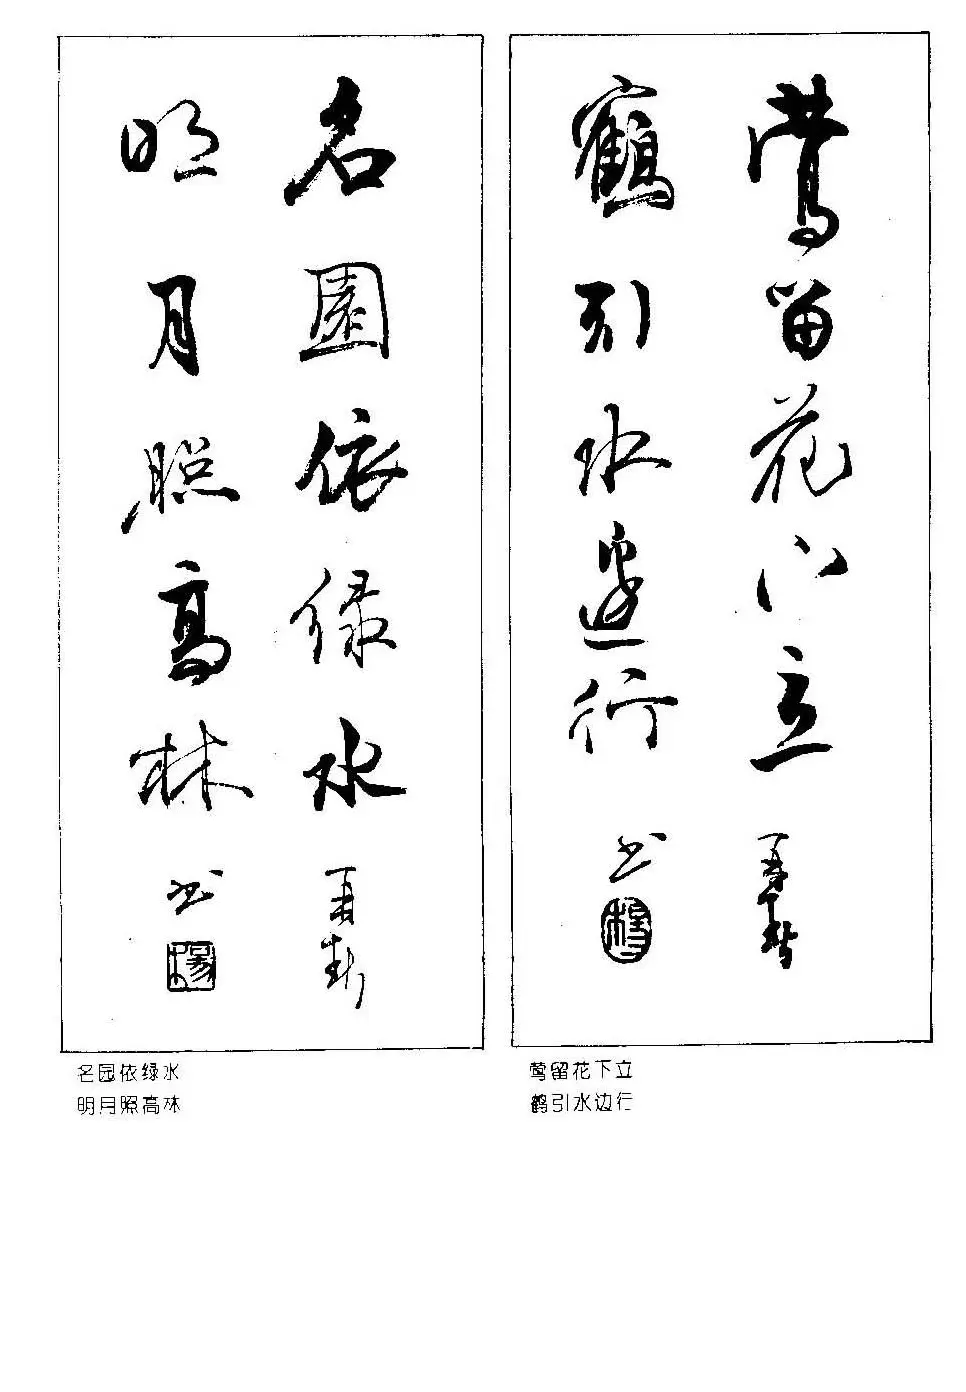 鶯留花下立
鶴引水邊行
书
楊
莺留花下立
鹤引水边行
名園依绿水
明月照高林
书
楊
名园依绿水
明月照高林